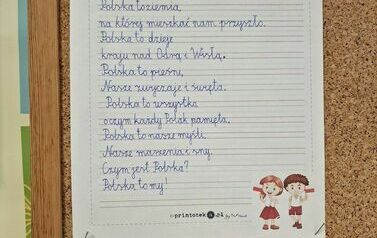 Polska to ziemia,
na której mieszkać nam przyszło.
Polska to dzieje
kraju nad Odrą i Wisłą.
Polska to pieśni,
Nasze zwyczaje i święta.
Polska to wszystko
o czym każdy Polak pamięta.
Polska to nasze myśli,
Nasze marzenia i sny.
Czym jest Polska?
Polska to my!
printoteka.pl